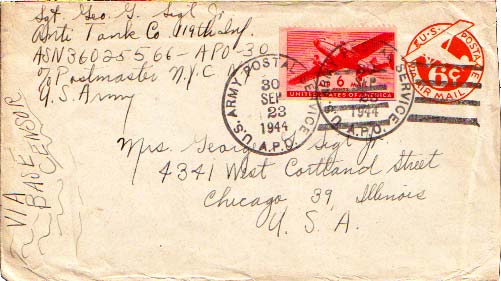 Sgt. Geo. G. Sigl Jr.
Anti Tank Co 119th Inf.
ASN 36025566 - APO - 30
c/o Postmaster N.Y.C N.Y.
U.S. Army
VIA
BASE
CENSOR
U.S. ARMY POSTAL SERVICE
A.P.O.
30
SEP
23
1944
6¢
UNITED STATES OF AMERICA
U.S. ARMY POSTAL SERVICE
A.P.O.
SEP
1944
U.S. POSTAGE
6¢
VIA AIR MAIL
Mrs. George Sigl Jr.
4341 West Cortland Street
Chicago 39, Illinois
U. S. A.